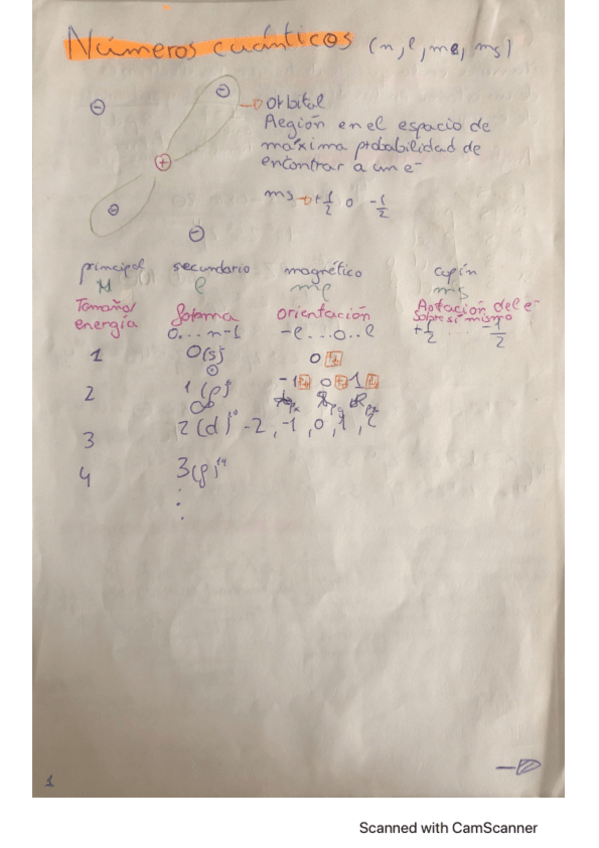 Números cuánticos (n, l, ml, ms)
→ orbital
Región en el espacio de
máxima probabilidad de
encontrar a un e-
ms → +1/2 o -1/2
principal secundario magnético espín
n l ml ms
Tamaño/ forma orientación Rotación del e-
energía 0...n-1 -l...0...l sobre sí mismo
+1/2 ... -1/2
1 0(s) 0
2 1(p)⁶ -1 0 +1
px py pz
3 2(d)¹⁰ -2, -1, 0, 1, 2
4 3(f)¹⁴
1
Scanned with CamScanner